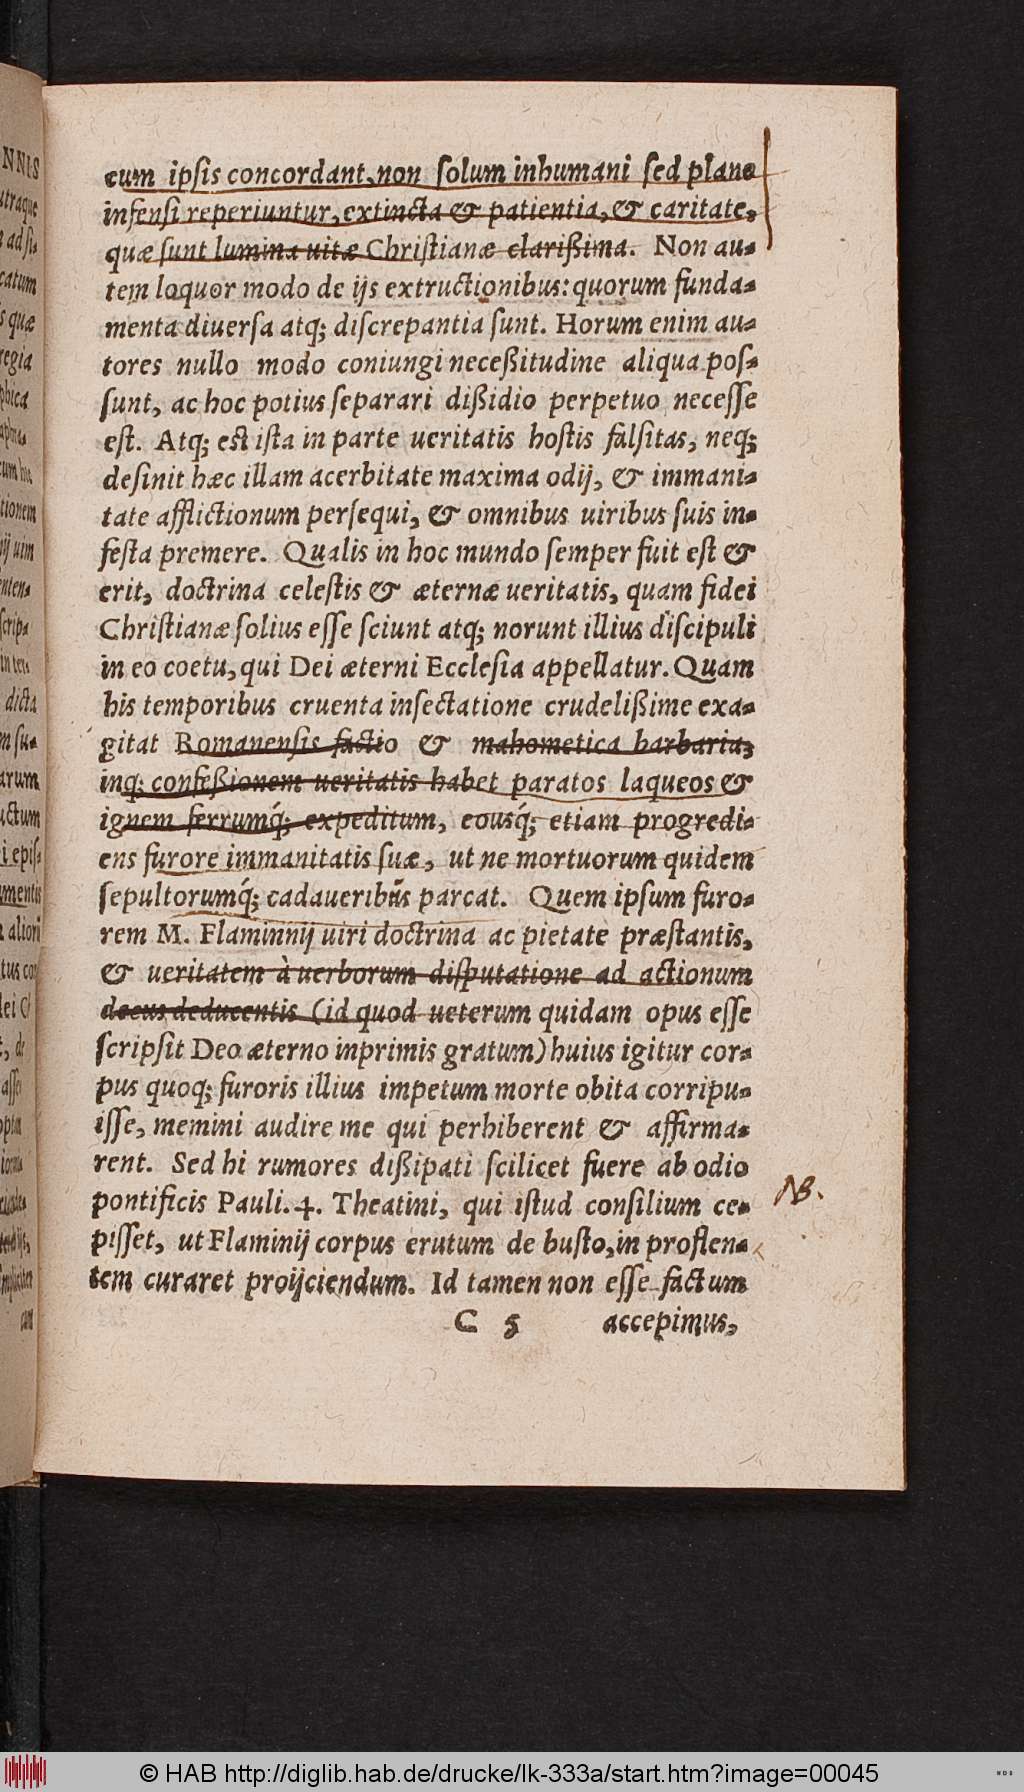 cum ipſis concordant, non ſolum inhumani ſed plane
infenſi reperiuntur, extincta & patientia, & caritate,
quæ ſunt lumina uitæ Chriſtianæ clarißima. Non au-
tem loquor modo de ijs extructionibus: quorum funda-
menta diuerſa atq; diſcrepantia ſunt. Horum enim au-
tores nullo modo coniungi neceßitudine aliqua poſ-
ſunt, ac hoc potius ſeparari dißidio perpetuo neceſſe
eſt. Atq; eſt iſta in parte ueritatis hoſtis falſitas, neq;
deſinit hæc illam acerbitate maxima odij, & immani-
tate afflictionum perſequi, & omnibus uiribus ſuis in-
feſta premere. Qualis in hoc mundo ſemper fuit eſt &
erit, doctrina celeſtis & æternæ ueritatis, quam fidei
Chriſtianæ ſolius eſſe ſciunt atq; norunt illius diſcipuli
in eo coetu, qui Dei æterni Eccleſia appellatur. Quam
his temporibus cruenta inſectatione crudelißime exa-
gitat Romanenſis factio & mahometica barbaria,
inq; confeßionem ueritatis habet paratos laqueos &
ignem ferrumq́; expeditum, eousq́; etiam progredi-
ens furore immanitatis ſuæ, ut ne mortuorum quidem
ſepultorumq́; cadaueribus parcat. Quem ipſum furo-
rem M. Flaminnij uiri doctrina ac pietate præſtantis,
& ueritatem à uerborum diſputatione ad actionum
decus deducentis (id quod ueterum quidam opus eſſe
ſcripſit Deo æterno inprimis gratum) huius igitur cor-
pus quoq; furoris illius impetum morte obita corripu-
iſſe, memini audire me qui perhiberent & affirma-
rent. Sed hi rumores dißipati ſcilicet fuere ab odio
pontificis Pauli. 4. Theatini, qui iſtud conſilium ce-
piſſet, ut Flaminij corpus erutum de buſto, in proflen-
tem curaret proijciendum. Id tamen non eſſe factum
C 5 accepimus,
NB.
© HAB http://diglib.hab.de/drucke/lk-333a/start.htm?image=00045